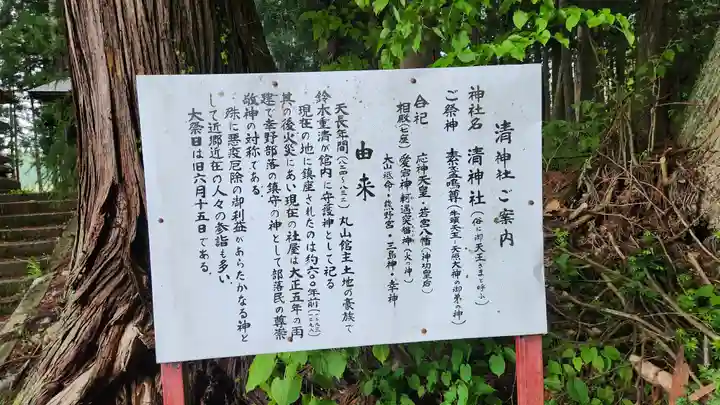 清神社ご案内
神社名 清神社（俗に明天王さまと呼ぶ）
ご祭神 素盞嗚尊（牛頭天王-天照大神の御弟の神）
合祀 応神天皇・若宮八幡（神功皇后）
相殿（七座） 愛宕神・軻遇突智神（火の神）
大山祗命・熊野宮・三島神・幸神
由来
天長年間（八二四〜八三三）丸山館主土地の豪族で
鈴木重済が館内に守護神として祀る
現在の地に鎮座されたのは約六〇〇年前
其の後火災にあい現在の社屋は大正五年の再
建で幸野部落の鎮守の神として部落民の尊崇
敬神の対称である。
殊に悪疫厄除の御利益があらたかなる神と
して近郷近在の人々の参詣も多い。
大祭日は旧六月十五日である。